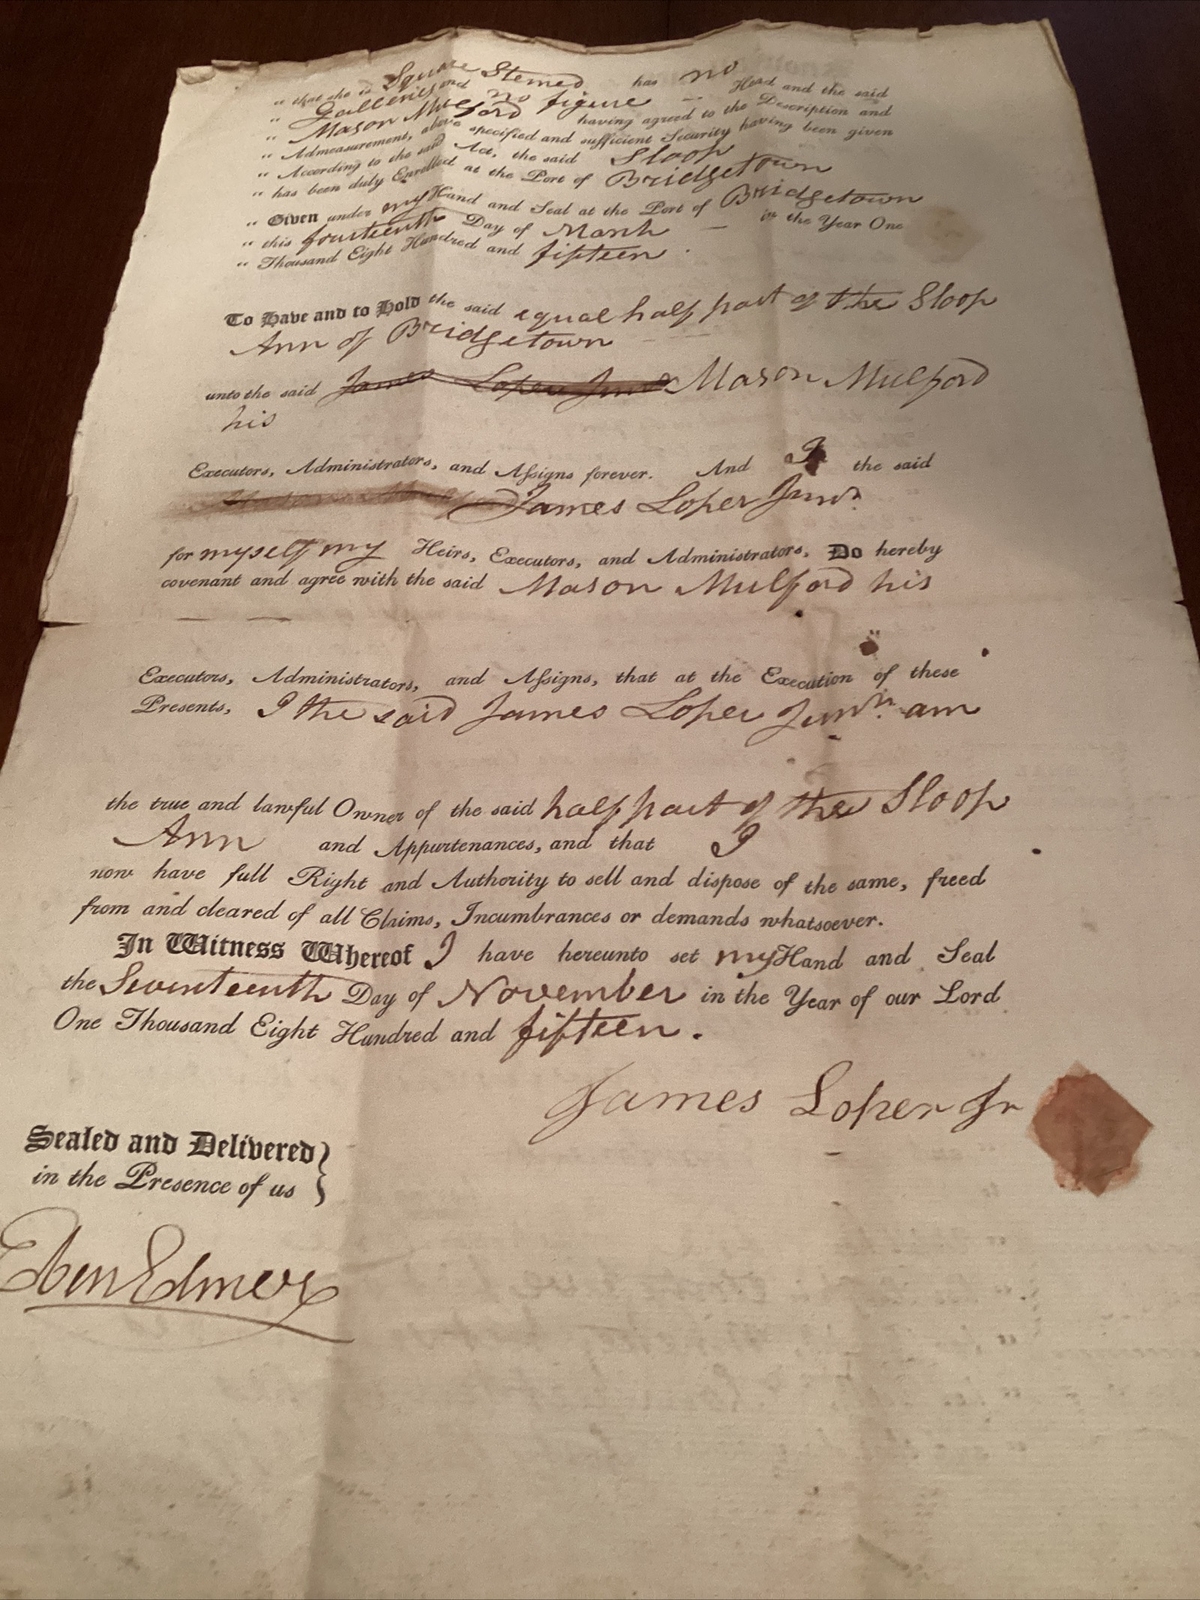 " that she is Square Sterned has no
" Galleries and no figure -- Head and the said
" Mason Mulford having agreed to the Description and
" Admeasurement, above specified and sufficient Security having been given
" According to the said Act, the said Sloop
" has been duly Enrolled at the Port of Bridgetown
" Given under my Hand and Seal at the Port of Bridgetown
" this fourteenth Day of March — in the Year One
" Thousand Eight Hundred and fifteen .
To Have and to Hold the said equal half part of the Sloop
Ann of Bridgetown
unto the said James Loper Junr Mason Mulford
his
Executors, Administrators, and Assigns forever. And I the said
James Loper Junr.
for myself my Heirs, Executors, and Administrators, Do hereby
covenant and agree with the said Mason Mulford his
Executors, Administrators, and Assigns, that at the Execution of these
Presents, I the said James Loper Junr. am
the true and lawful Owner of the said half part of the Sloop
Ann and Appurtenances, and that I
now have full Right and Authority to sell and dispose of the same, freed
from and cleared of all Claims, Incumbrances or demands whatsoever.
In Witness Whereof I have hereunto set my Hand and Seal
the Seventeenth Day of November in the Year of our Lord
One Thousand Eight Hundred and fifteen.
James Loper Jr
Sealed and Delivered
in the Presence of us
Eben Elmer